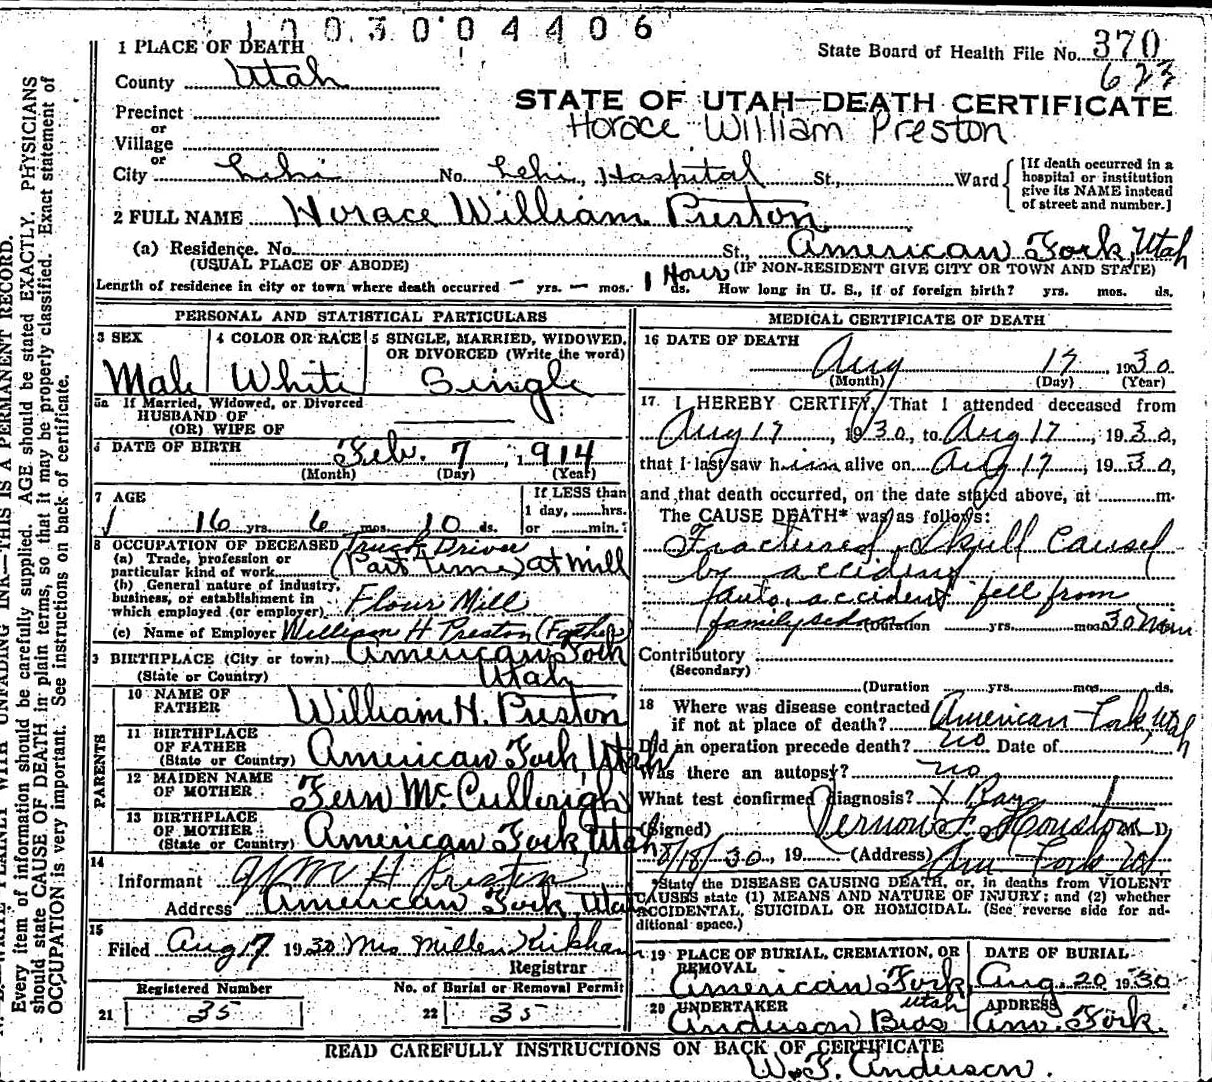 1003004406
1 PLACE OF DEATH
State Board of Health File No. 370
County Utah
623
STATE OF UTAH—DEATH CERTIFICATE
Precinct
or
Horace William Preston
Village
or
City Lehi No. Lehi, Hospital St., Ward
[If death occurred in a
hospital or institution
give its NAME instead
of street and number.]
2 FULL NAME Horace William Preston
(a) Residence. No. St., American Fork, Utah
(USUAL PLACE OF ABODE) (IF NON-RESIDENT GIVE CITY OR TOWN AND STATE)
Length of residence in city or town where death occurred — yrs. — mos. 1 Hour ds. How long in U. S., if of foreign birth? yrs. mos. ds.
PERSONAL AND STATISTICAL PARTICULARS
3 SEX
Male
4 COLOR OR RACE
White
5 SINGLE, MARRIED, WIDOWED,
OR DIVORCED (Write the word)
Single
5a If Married, Widowed, or Divorced
HUSBAND OF
(OR) WIFE OF
6 DATE OF BIRTH Feb. 7, 1914
(Month) (Day) (Year)
7 AGE
16 yrs. 6 mos. 10 ds.
If LESS than
1 day, hrs.
or min.?
8 OCCUPATION OF DECEASED Truck Driver
(a) Trade, profession or
particular kind of work (Part time) at mill
(b) General nature of industry,
business, or establishment in
which employed (or employer) Flour Mill
(c) Name of Employer William H Preston (Father)
9 BIRTHPLACE (City or town) American Fork
(State or Country) Utah
PARENTS
10 NAME OF
FATHER William H. Preston
11 BIRTHPLACE
OF FATHER
(State or Country) American Fork, Utah
12 MAIDEN NAME
OF MOTHER Fern McCullough
13 BIRTHPLACE
OF MOTHER
(State or Country) American Fork, Utah
14
Informant Wm H Preston
Address American Fork, Utah
15
Filed Aug 17 1930 Mrs Kirkham
Registrar
Registered Number No. of Burial or Removal Permit
21 35 22 35
MEDICAL CERTIFICATE OF DEATH
16 DATE OF DEATH
Aug 17 1930
(Month) (Day) (Year)
17. I HEREBY CERTIFY, That I attended deceased from
Aug 17, 1930, to Aug 17, 1930,
that I last saw him alive on Aug 17, 1930,
and that death occurred, on the date stated above, at m.
The CAUSE DEATH* was as follows:
Fractured Skull Caused
by accident
auto. accident fell from
family sedan (Duration yrs. mos. 30
Contributory
(Secondary)
(Duration yrs. mos. ds.
18 Where was disease contracted
if not at place of death? American Fork, Utah
Did an operation precede death? no Date of
Was there an autopsy? no
What test confirmed diagnosis? X Ray
(Signed) Vernon F. Houston M. D.
8/18/30, 19 (Address) Am Fork Ut.
*State the DISEASE CAUSING DEATH, or, in deaths from VIOLENT
CAUSES state (1) MEANS AND NATURE OF INJURY; and (2) whether
ACCIDENTAL, SUICIDAL OR HOMICIDAL. (See reverse side for ad-
ditional space.)
19 PLACE OF BURIAL, CREMATION, OR
REMOVAL
American Fork
Utah
DATE OF BURIAL
Aug. 20 1930
20 UNDERTAKER
Anderson Bros
ADDRESS
Am. Fork.
READ CAREFULLY INSTRUCTIONS ON BACK OF CERTIFICATE
W. F. Anderson.
WRITE PLAINLY WITH UNFADING INK—THIS IS A PERMANENT RECORD.
Every item of information should be carefully supplied. AGE should be stated EXACTLY. PHYSICIANS
should state CAUSE OF DEATH in plain terms, so that it may be properly classified. Exact statement of
OCCUPATION is very important. See instructions on back of certificate.